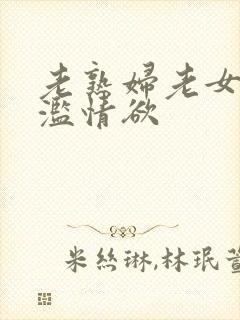 老熟婦老女
濫情欲
米絲琳,林珉萱